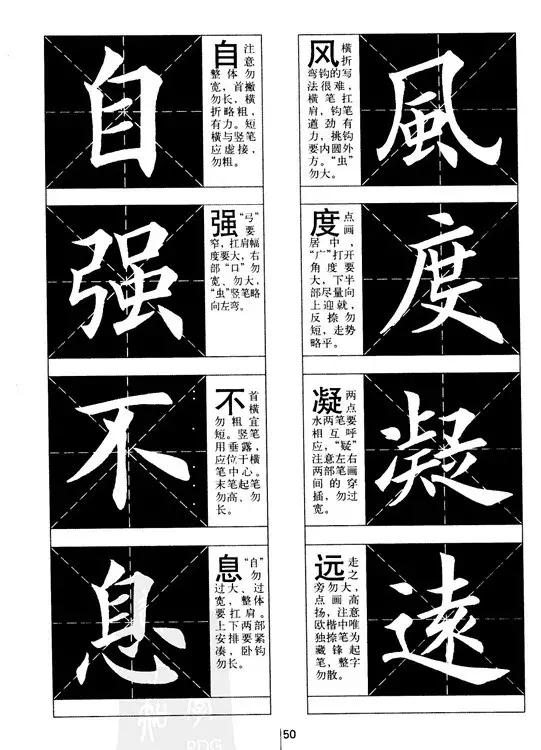 自
自 注
意
整体勿
宽，首撇
勿长，横
折略粗，
有力。短
横与竖笔
应虚接，
勿粗。
强
强 “弓”
要
窄，扛肩幅
度要大，右
部“口”勿
宽、勿大，
“虫”竖笔略
向左弯。
不
不 首
横
勿粗宜
短。竖笔
用垂露，
应位于横
笔中心。
末笔起笔
勿高、勿
长。
息
息 “自”
勿
过大，过
宽，整体
要扛肩。
上下两部
安排要紧
凑，卧钩
勿长。
风 横
折
弯钩的写
法很难，
横笔扛
肩，钩笔
遒劲有
力，挑钩
要内圆外
方。“虫”
勿大。
風
度 点
画
居中，
“广”打开
角度要
大，下半
部尽量向
上迎就，
反捺勿
短，走势
略平。
度
凝 两
点
水两笔要
相互呼
应，“疑”
注意左右
两部笔画
间的穿
插，勿过
宽。
凝
远 走
之
旁勿大，
点画高
扬，注意
欧楷中唯
独捺笔为
藏锋起
笔，整字
勿散。
遠
50
PDG